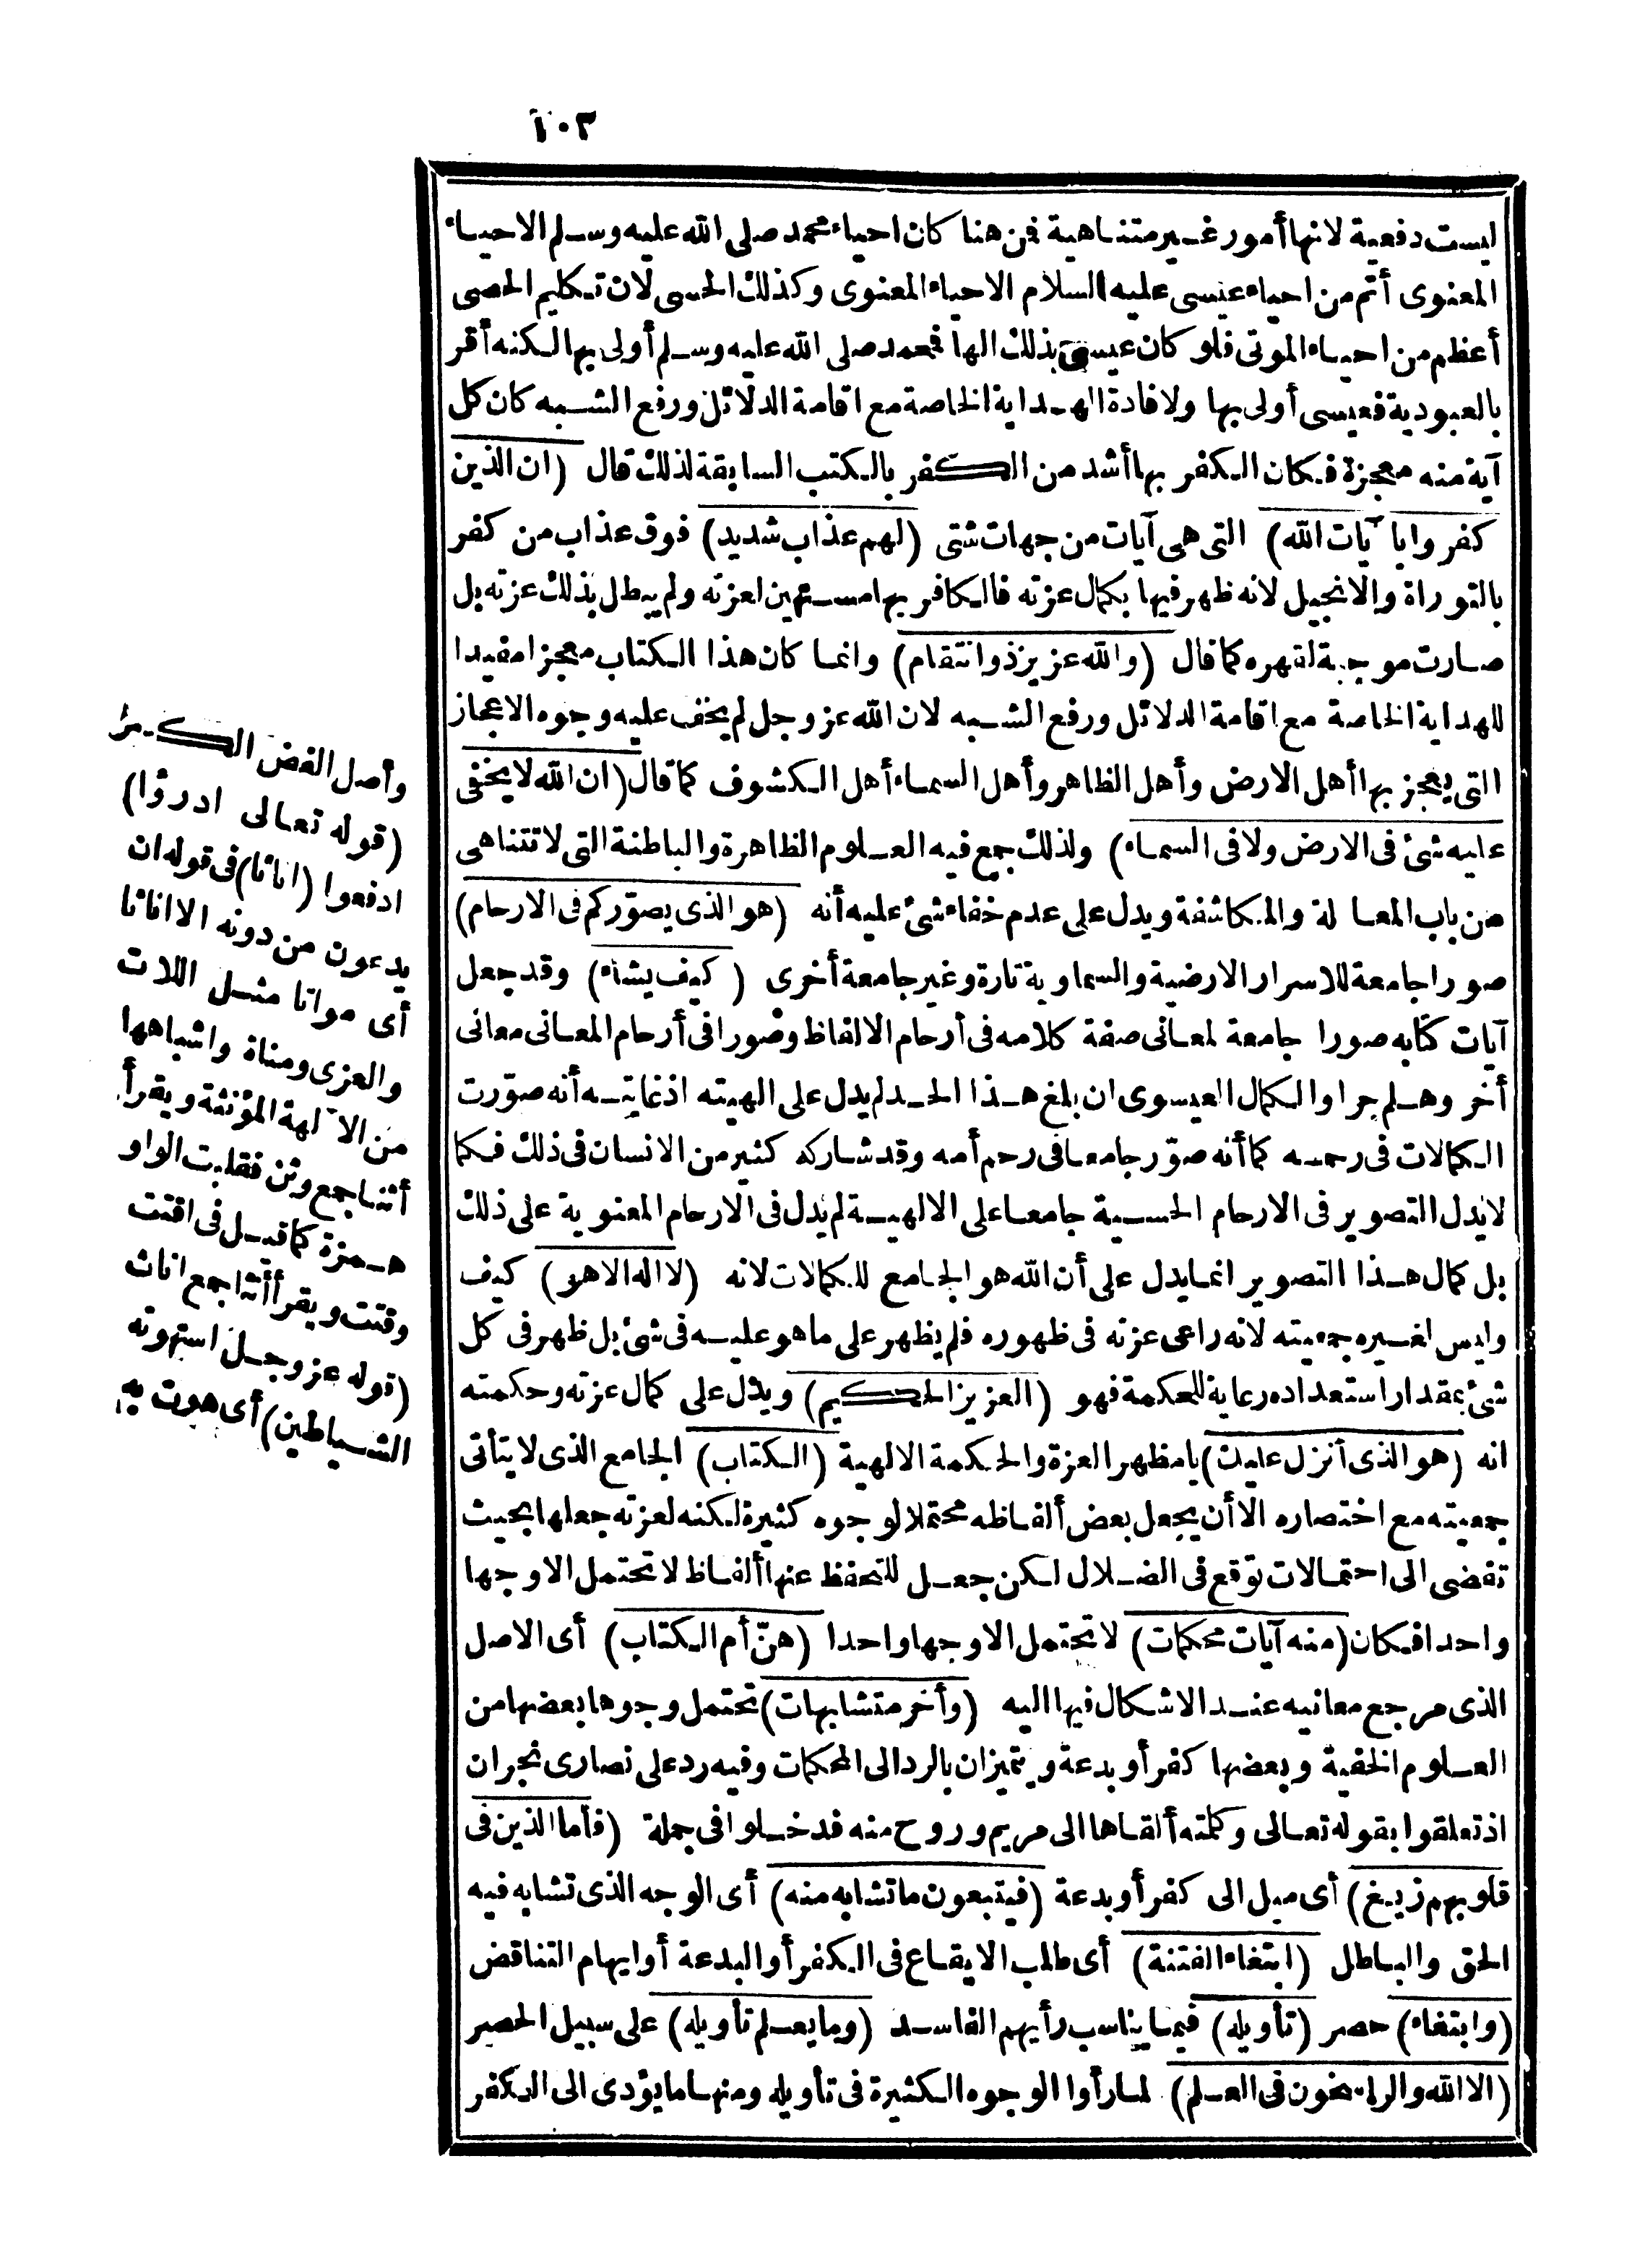 ١٠٣
ليست دفعية لانها أمور غير متناهية فمن هنا كان احياء محمد صلى الله عليه وسلم الاحياء
المعنوى أتم من احياء عيسى عليه السلام الاحياء المعنوى وكذلك الحسى لان تكليم الحصى
أعظم من احياء الموتى فلو كان عيسى بذلك الها فمحمد صلى الله عليه وسلم أولى بها لكنه أقر
بالعبودية فعيسى أولى بها ولافادة الهداية الخاصة مع اقامة الدلائل ورفع الشبه كان كل
آية منه معجزة فكان الكفر بها أشد من الكفر بالكتب السابقة لذلك قال (ان الذين
كفروا بآيات الله) التى هى آيات من جهات شتى (لهم عذاب شديد) فوق عذاب من كفر
بالتوراة والانجيل لانه ظهر فيها بكمال عزته فالكافر بها مستهين لعزته ولم يبطل بذلك عزته بل
صارت موجبة لقهره كما قال (والله عزيز ذوانتقام) وانما كان هذا الكتاب معجزا مفيدا
للهداية الخاصة مع اقامة الدلائل ورفع الشبه لان الله عز وجل لم يخف عليه وجوه الاعجاز
التى يعجز بها أهل الارض وأهل الظاهر وأهل السماء أهل الكشوف كما قال (ان الله لا يخفى
عليه شئ فى الارض ولا فى السماء) ولذلك جمع فيه العلوم الظاهرة والباطنة التى لا تتناهى
من باب المعاملة والمكاشفة ويدل على عدم خفاء شئ عليه أنه (هو الذى يصوّركم فى الارحام)
صورا جامعة للاسرار الارضية والسماوية تارة وغير جامعة أخرى (كيف يشاء) وقد جعل
آيات كتابه صورا جامعة لمعانى صفة كلامه فى أرحام الالفاظ وصورا فى أرحام المعانى معانى
أخر وهلم جرا والكمال العيسوى ان بلغ هذا الحد لم يدل على الهيته اذ غايته أنه صوّرت
الكمالات فى رحمه كما أنه صوّر جامعا فى رحم أمه وقد شاركه كثير من الانسان فى ذلك فكما
لا يدل التصوير فى الارحام الحسية جامعا على الالهية لم يدل فى الارحام المعنوية على ذلك
بل كمال هذا التصوير انما يدل على أن الله هو الجامع للكمالات لانه (لا اله الا هو) كيف
وليس لغيره جمعيته لانه راعى عزته فى ظهوره فلم يظهر على ما هو عليه فى شئ بل ظهر فى كل
شئ بمقدار استعداده رعاية للحكمة فهو (العزيز الحكيم) ويدل على كمال عزته وحكمته
انه (هو الذى أنزل عليك) يا مظهر العزة والحكمة الالهية (الكتاب) الجامع الذى لا يتأتى
جمعيته مع اختصاره الا أن يجعل بعض ألفاظه محتملا لوجوه كثيرة لكنه لعزته جعلها بحيث
تفضى الى احتمالات توقع فى الضلال لكن جعل للتحفظ عنها ألفاظا لا تحتمل الا وجها
واحدا فكان (منه آيات محكمات) لا تحتمل الا وجها واحدا (هنّ أم الكتاب) أى الاصل
الذى مرجع معانيه عند الاشكال فيها اليه (وأخر متشابهات) تحتمل وجوها بعضها من
العلوم الخفية وبعضها كفر أو بدعة ويتميزان بالرد الى المحكمات وفيه رد على نصارى نجران
اذ تعلقوا بقوله تعالى وكلمته ألقاها الى مريم وروح منه فدخلوا فى جملة (فأما الذين فى
قلوبهم زيغ) أى ميل الى كفر أو بدعة (فيتبعون ما تشابه منه) أى الوجه الذى تشابه فيه
الحق والباطل (ابتغاء الفتنة) أى طلب الايقاع فى الكفر أو البدعة أو ايهام التناقض
(وابتغاء) حصر (تأويله) فيما يناسب رأيهم الفاسد (وما يعلم تأويله) على سبيل الحصر
(الا الله والراسخون فى العلم) لما رأوا الوجوه الكثيرة فى تأويله ومنها ما يؤدى الى الكفر
وأصل الفض الكسر
(قوله تعالى ادرؤا)
ادفعوا (اناثا) فى قوله ان
يدعون من دونه الا اناثا
أى مواتا مثل اللات
والعزى ومناة واشباهها
من الآلهة المؤنثة ويقرأ
أثنا جمع وثن فقلبت الواو
همزة كما قيل فى اقتت
وقتت ويقرأ أنثا جمع اناث
(قوله عز وجل استهوته
الشياطين) أى هوت به